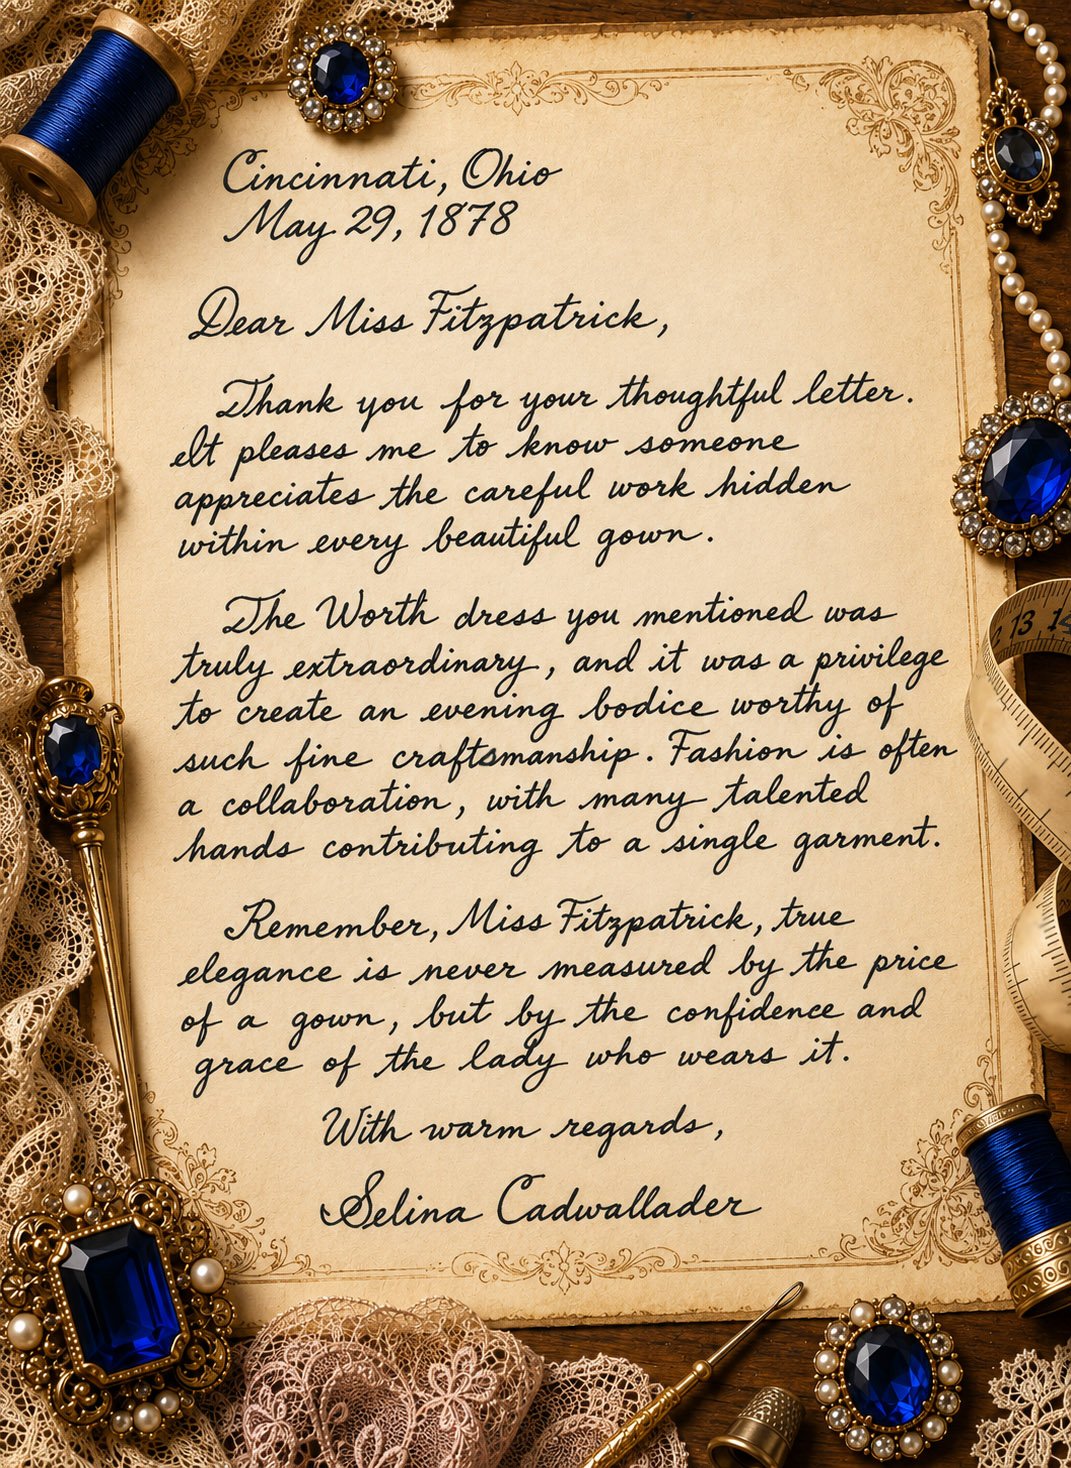 Cincinnati, Ohio
May 29, 1878
Dear Miss Fitzpatrick,
Thank you for your thoughtful letter.
It pleases me to know someone
appreciates the careful work hidden
within every beautiful gown.
The Worth dress you mentioned was
truly extraordinary, and it was a privilege
to create an evening bodice worthy of
such fine craftsmanship. Fashion is often
a collaboration, with many talented
hands contributing to a single garment.
Remember, Miss Fitzpatrick, true
elegance is never measured by the price
of a gown, but by the confidence and
grace of the lady who wears it.
With warm regards,
Selina Cadwallader
13 14